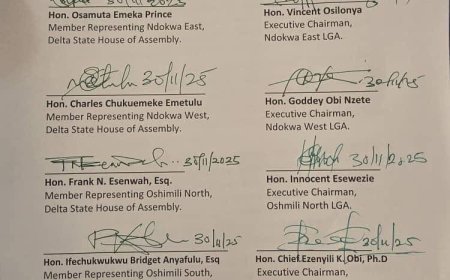 30/11/2025
Hon. Osamuta Emeka Prince
Member Representing Ndokwa East,
Delta State House of Assembly.
Hon. Vincent Osilonya
Executive Chairman,
Ndokwa East LGA.
30/11/25
Hon. Charles Chukuemeke Emetulu
Member Representing Ndokwa West,
Delta State House of Assembly.
30/11/25
Hon. Goddey Obi Nzete
Executive Chairman,
Ndokwa West LGA.
30/11/2025
Hon. Frank N. Esenwah, Esq.
Member Representing Oshimili North,
Delta State House of Assembly.
30/11/2025
Hon. Innocent Esewezie
Executive Chairman,
Oshmili North LGA.
30/11/25
Hon. Ifechukwukwu Bridget Anyafulu, Esq
Member Representing Oshimili South,
30/11/25
Hon. Chief.Ezenyili K. Obi, Ph.D
Executive Chairman,